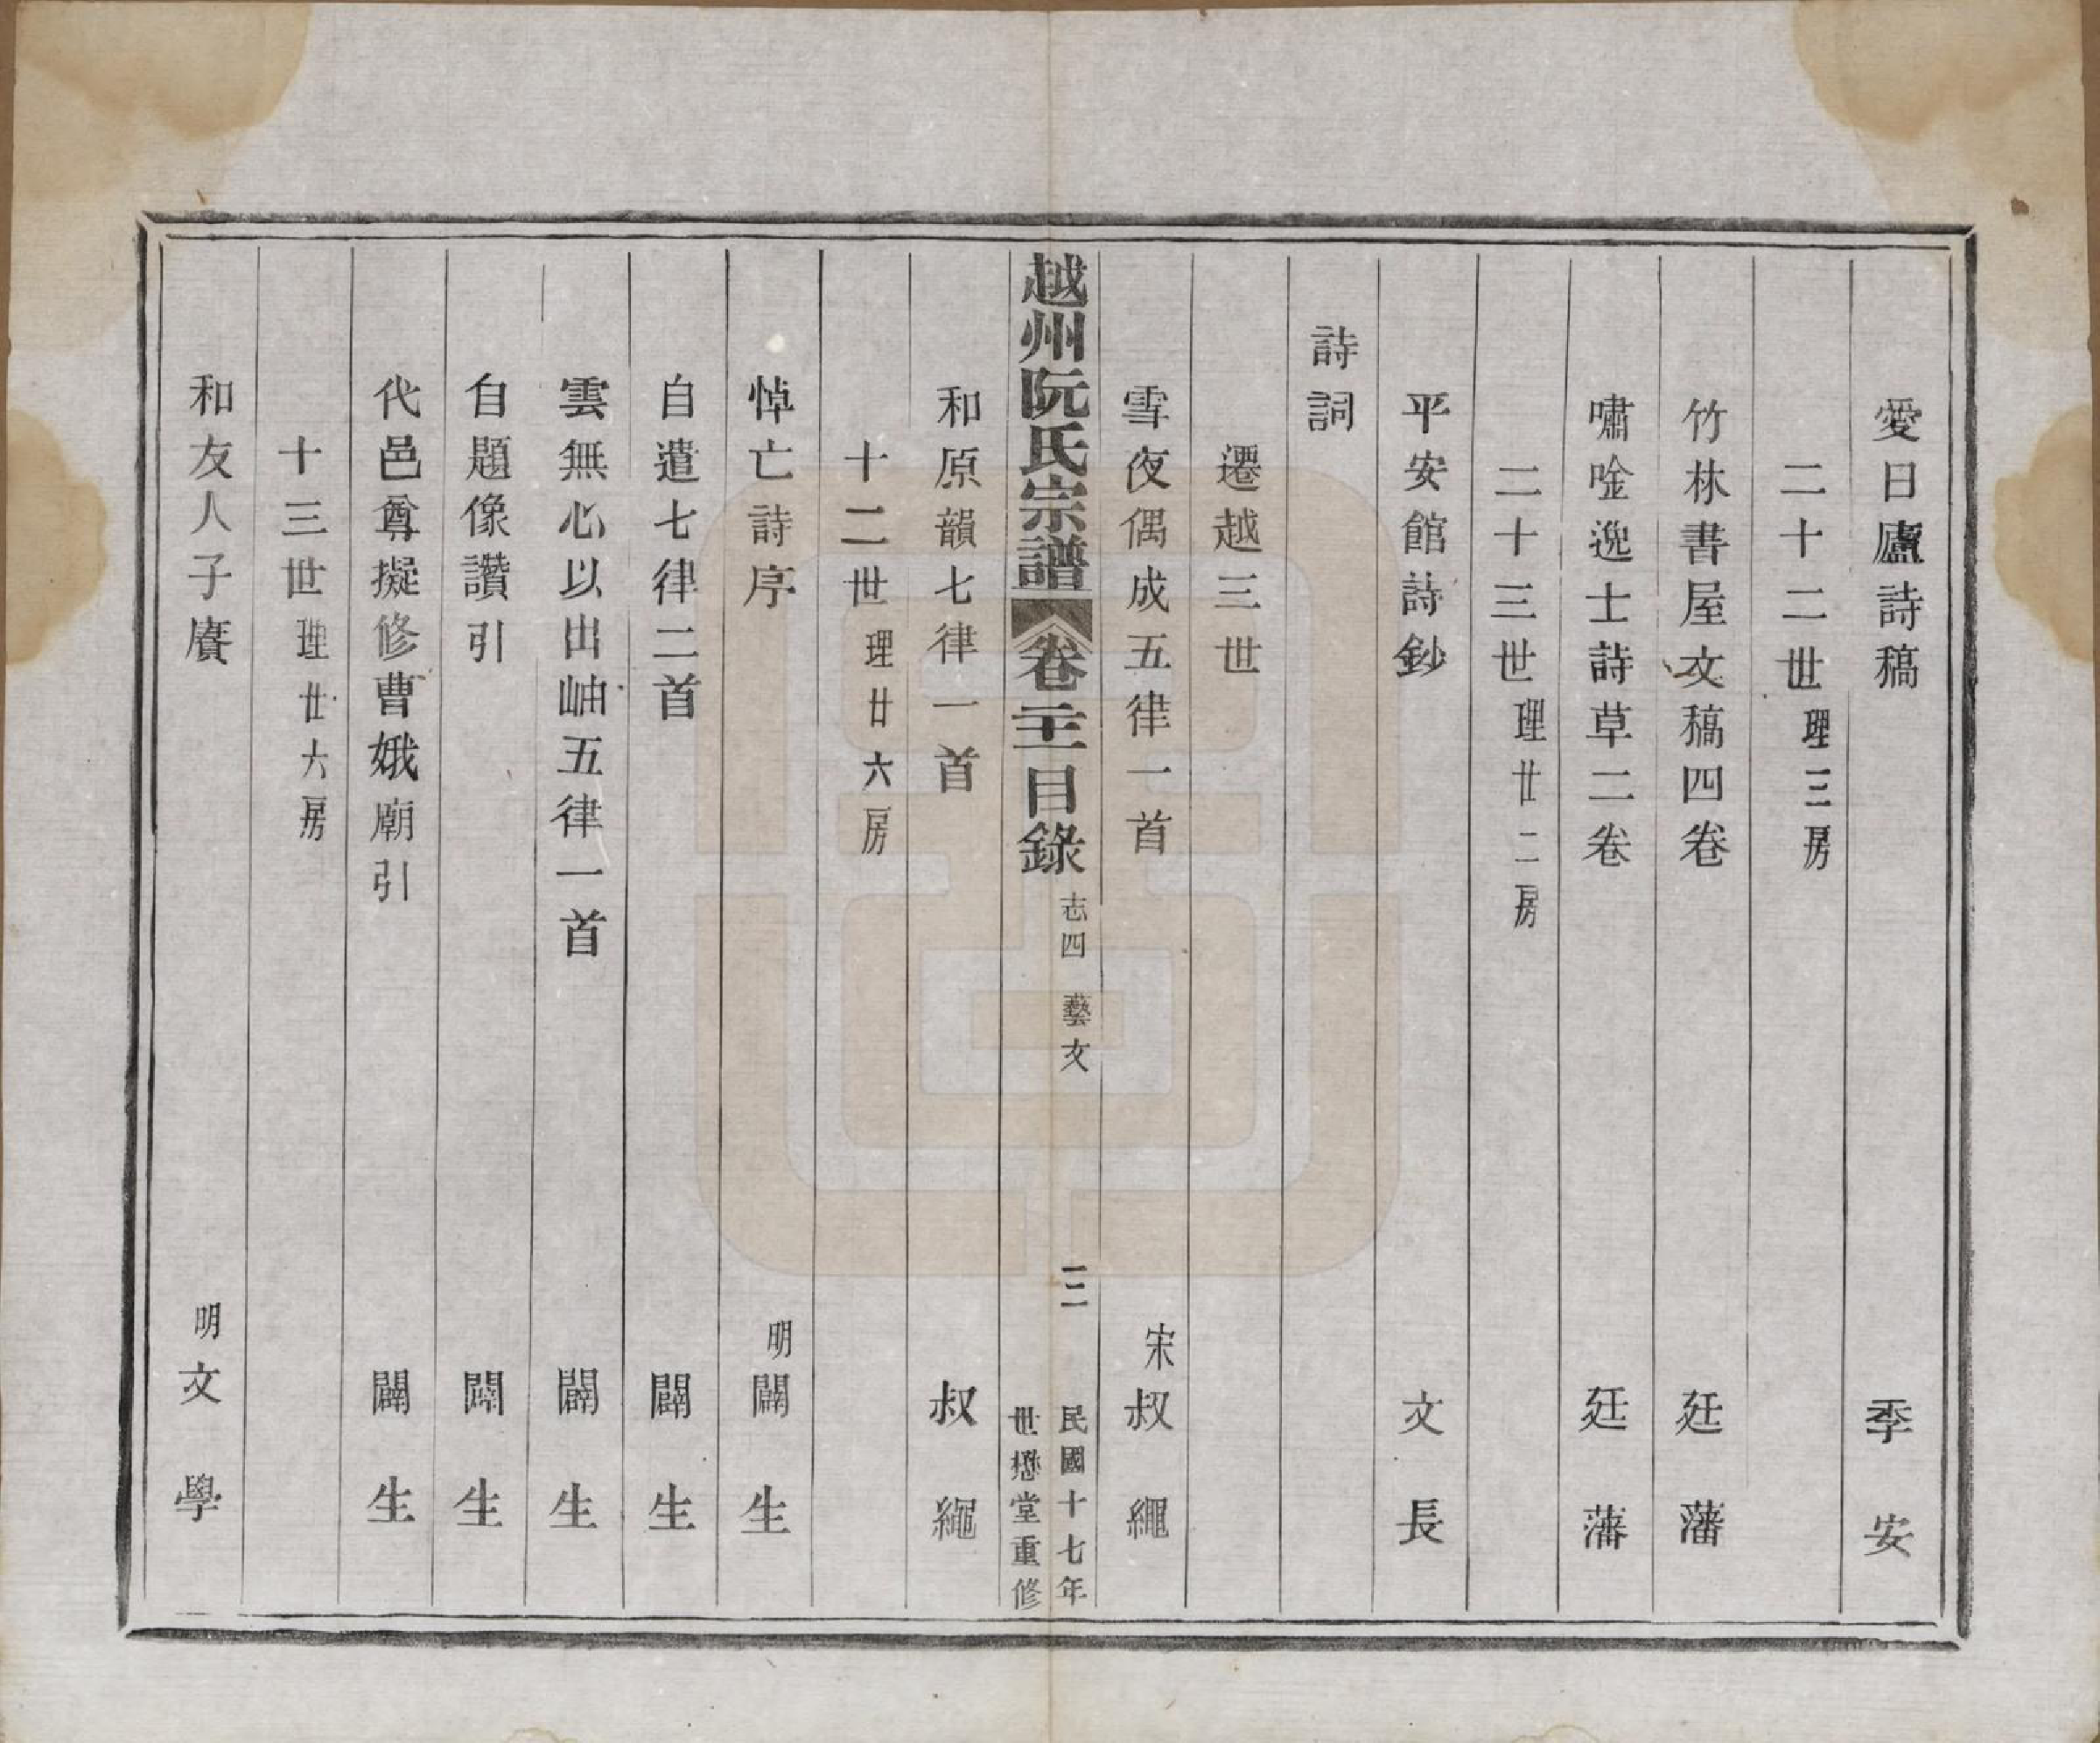 愛日廬詩稿 季安
二十二世 理三房
竹林書屋文稿四卷 廷藩
嘯唫逸士詩草二卷 廷藩
二十三世 理廿二房
平安館詩鈔 文長
詩詞
遷越三世
雪夜偶成五律一首 宋叔繩
越州阮氏宗譜 卷二十一目錄 志四 藝文 三 民國十七年
世懋堂重修
和原韻七律一首 叔繩
十二世 理廿六房
悼亡詩序 明闢生
自遣七律二首 闢生
雲無心以出岫五律一首 闢生
自題像讚引 闢生
代邑尊擬修曹娥廟引 闢生
十三世 理廿六房
和友人子賡 明文學